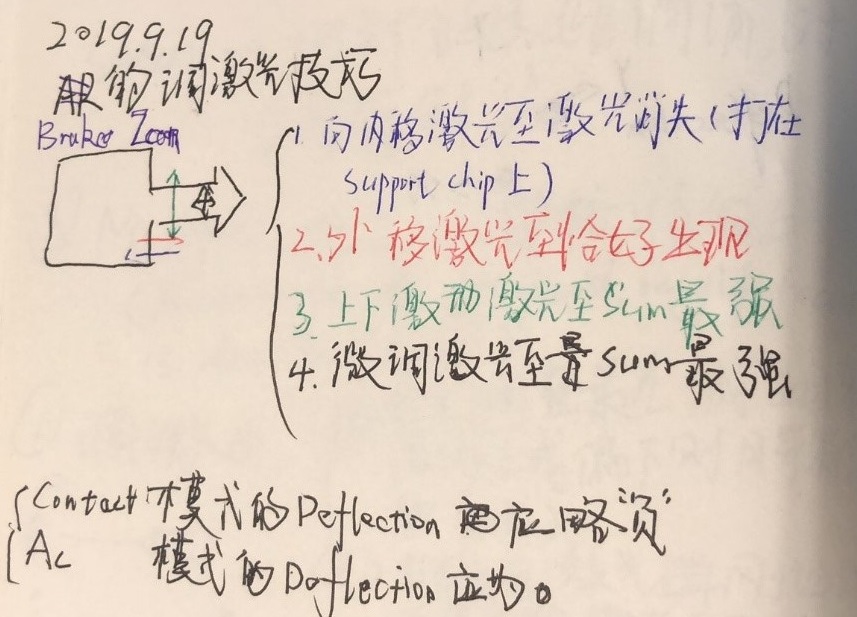 2019.9.19
的调激光技巧
1. 向内移激光至激光消失(打在
support chip上)
2. 外移激光到恰好出现
3. 上下激动激光至Sum最强
4. 微调激光至Sum最强
Contact 模式的Deflection 应略负
AC 模式的Deflection 应为0